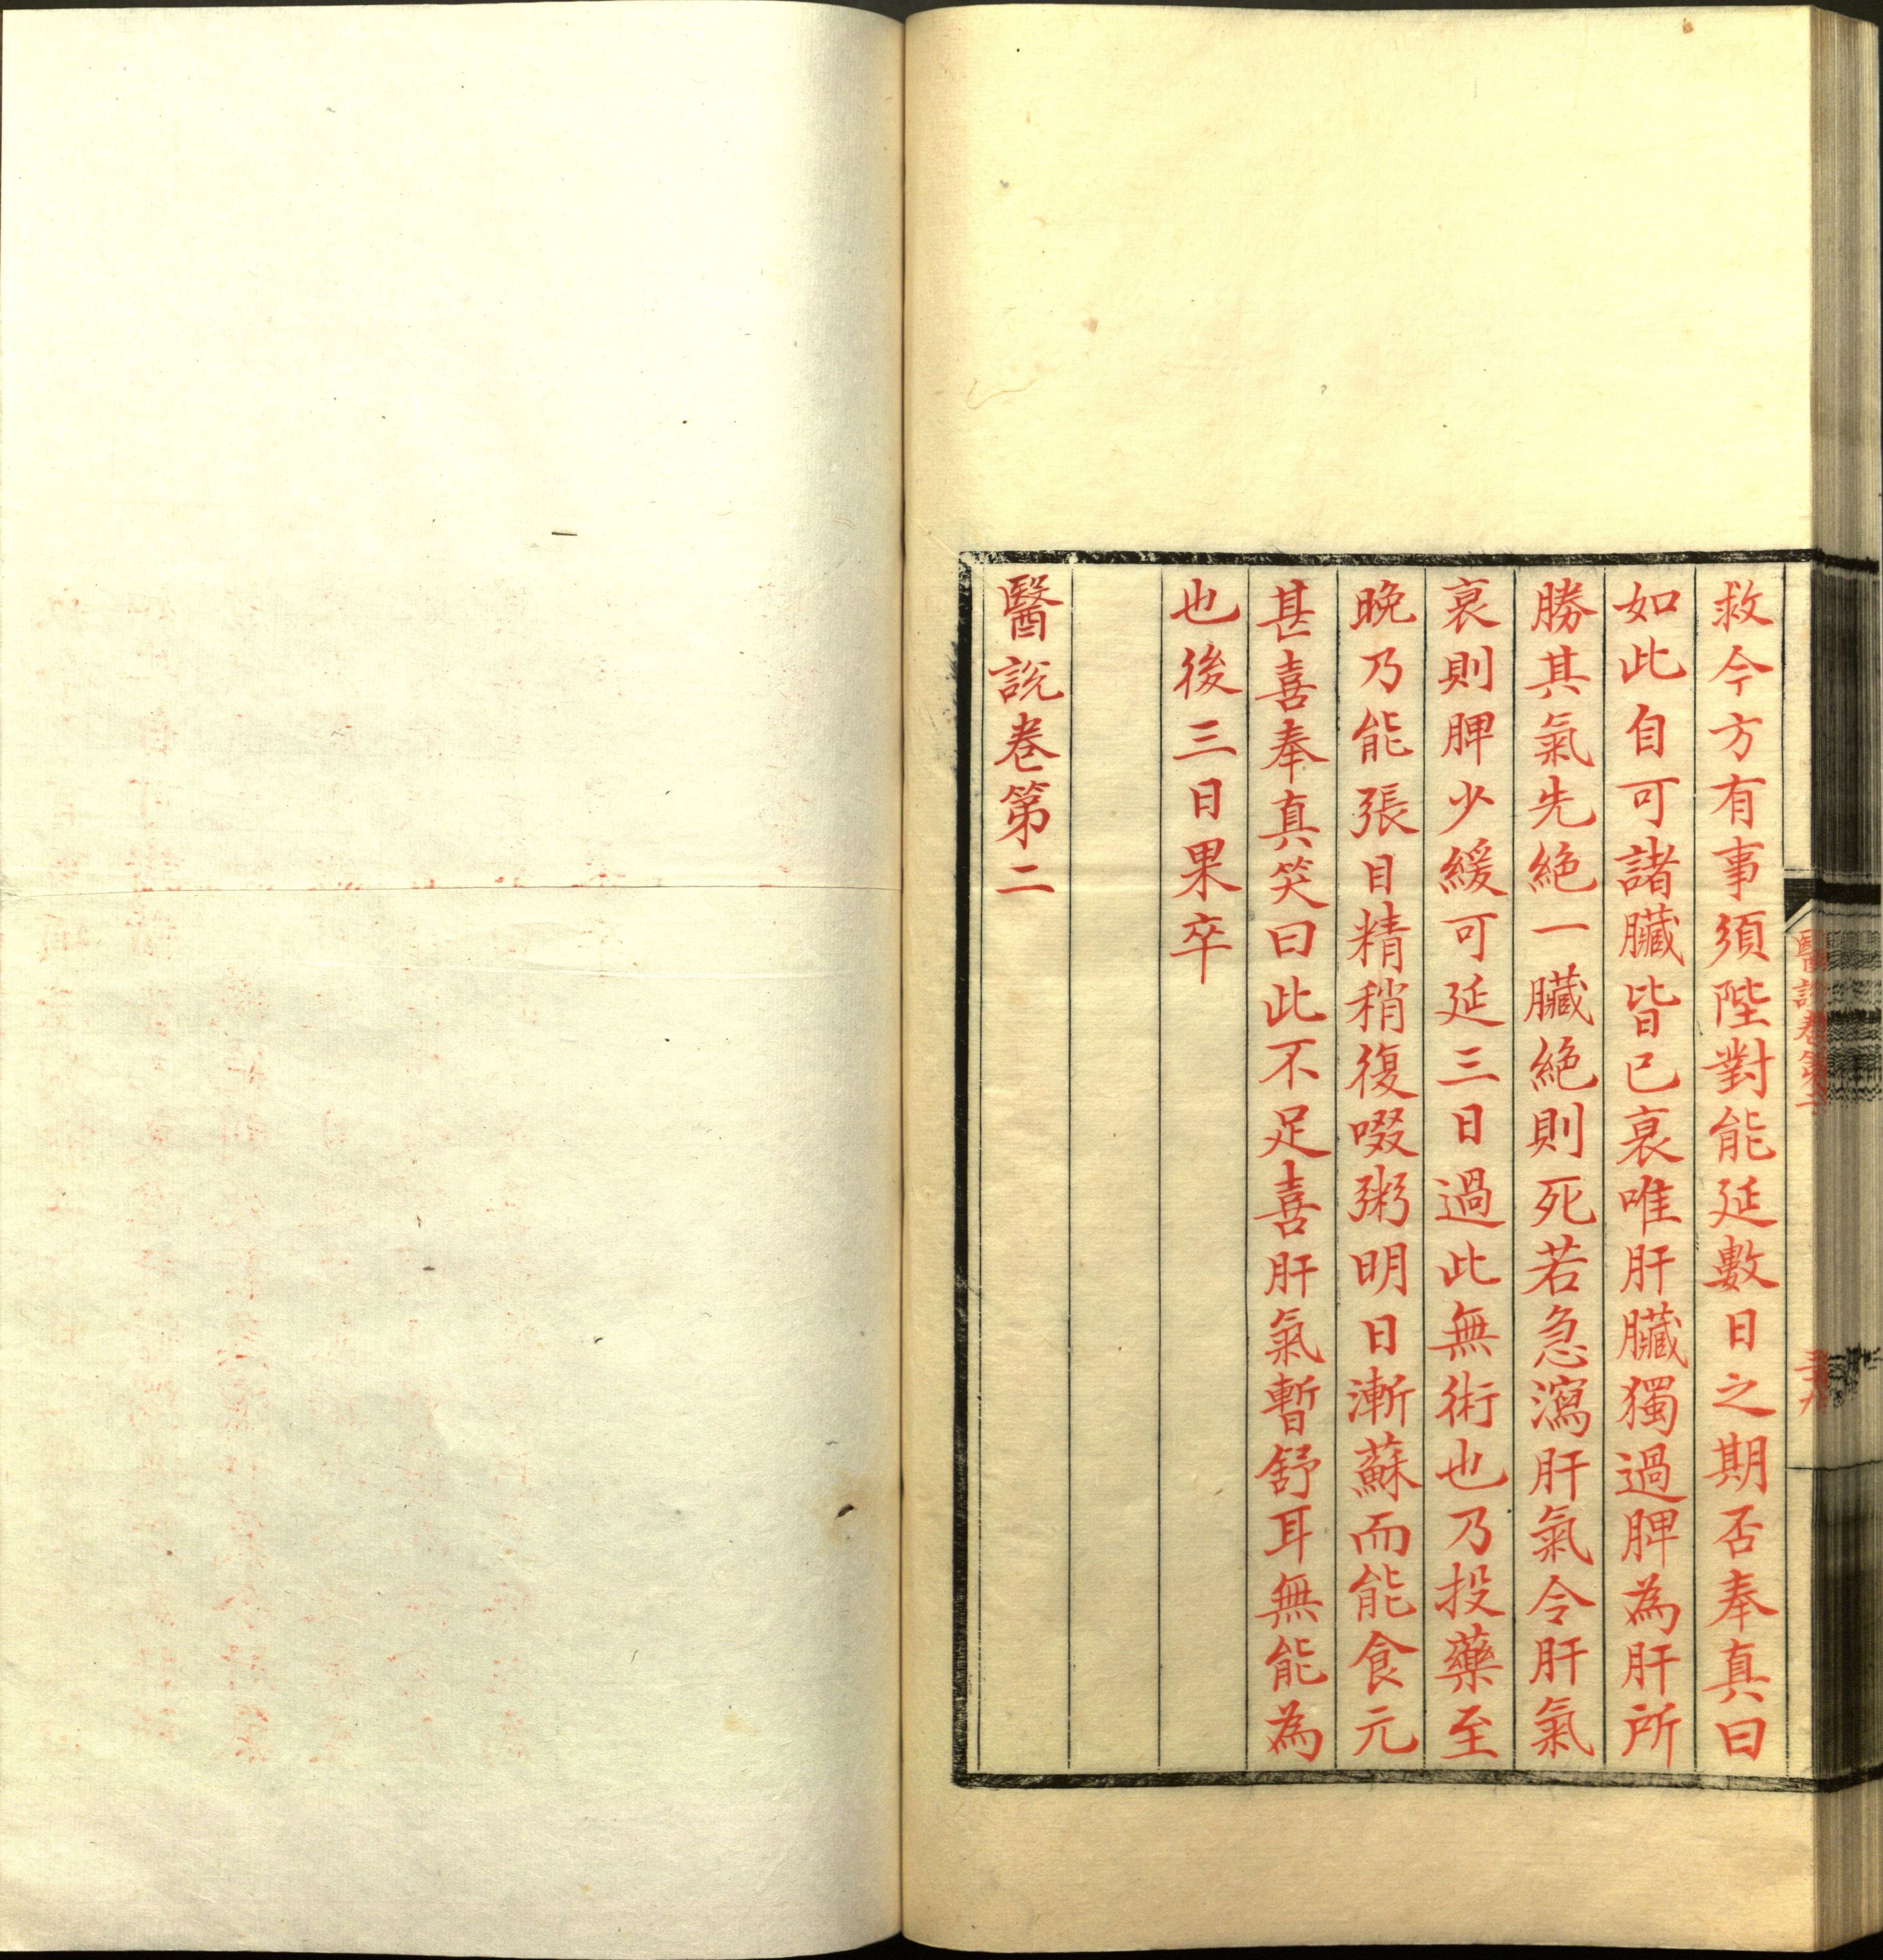 救今方有事須陛對能延數日之期否奉真曰
如此自可諸臟皆已衰唯肝臟獨過脾為肝所
勝其氣先絕一臟絕則死若急瀉肝氣令肝氣
衰則脾少緩可延三日過此無術也乃投藥至
晚乃能張目精稍復啜粥明日漸蘇而能食元
甚喜奉真笑曰此不足喜肝氣暫舒耳無能為
也後三日果卒
醫說卷第二
醫說卷第二